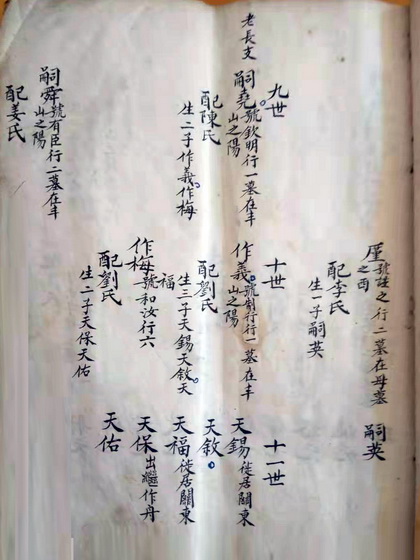 號之行二墓在母墓
之西
配李氏
生一子嗣英
嗣英
九世
十世
十一世
老長支
嗣堯號欽明行一墓在丰
山之陽
配陳氏
生二子作義作梅
嗣舜號有臣行二墓在丰
山之陽
配姜氏
作義號制行行一墓在丰
山之陽
配劉氏
生三子天錫天敘天
福
作梅號和汝行六
配劉氏
生二子天保天佑
天錫徙居關東
天敘
天福徙居關東
天保出繼作舟
天佑